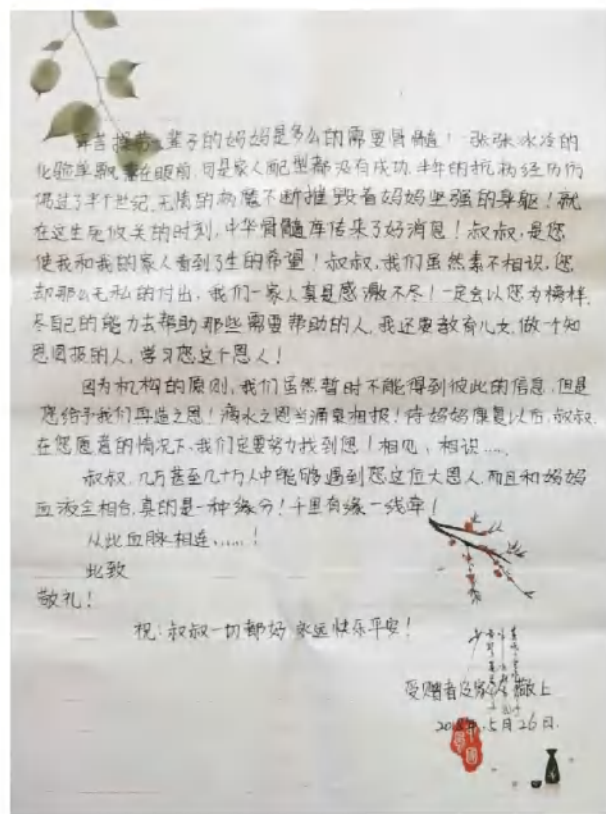 辛苦操劳一辈子的妈妈是多么的需要骨髓！一张张冰冷的
化验单飘落在眼前，可是家人配型都没有成功，半年的抗病经历仿
佛过了半个世纪，无情的病魔不断摧毁着妈妈坚强的身躯！就
在这生死攸关的时刻，中华骨髓库传来了好消息！叔叔，是您
使我和我的家人看到了生的希望！叔叔，我们虽然素不相识，您
却那么无私的付出，我们一家人真是感激不尽！一定会以您为榜样，
尽自己的能力去帮助那些需要帮助的人，我还要教育儿女，做一个知
恩图报的人，学习您这个恩人！
因为机构的原则，我们虽然暂时不能得到彼此的信息，但是
您给予我们再造之恩！滴水之恩当涌泉相报！待妈妈康复以后，叔叔，
在您愿意的情况下，我们定要努力找到您！相见，相识……
叔叔，几万甚至几十万人中能够遇到您这位大恩人，而且和妈妈
血液全相合，真的是一种缘分！千里有缘一线牵！
从此血脉相连……！
此致
敬礼！
祝：叔叔一切都好 永远快乐平安！
受赠者及家人敬上
2018年5月26日
中國